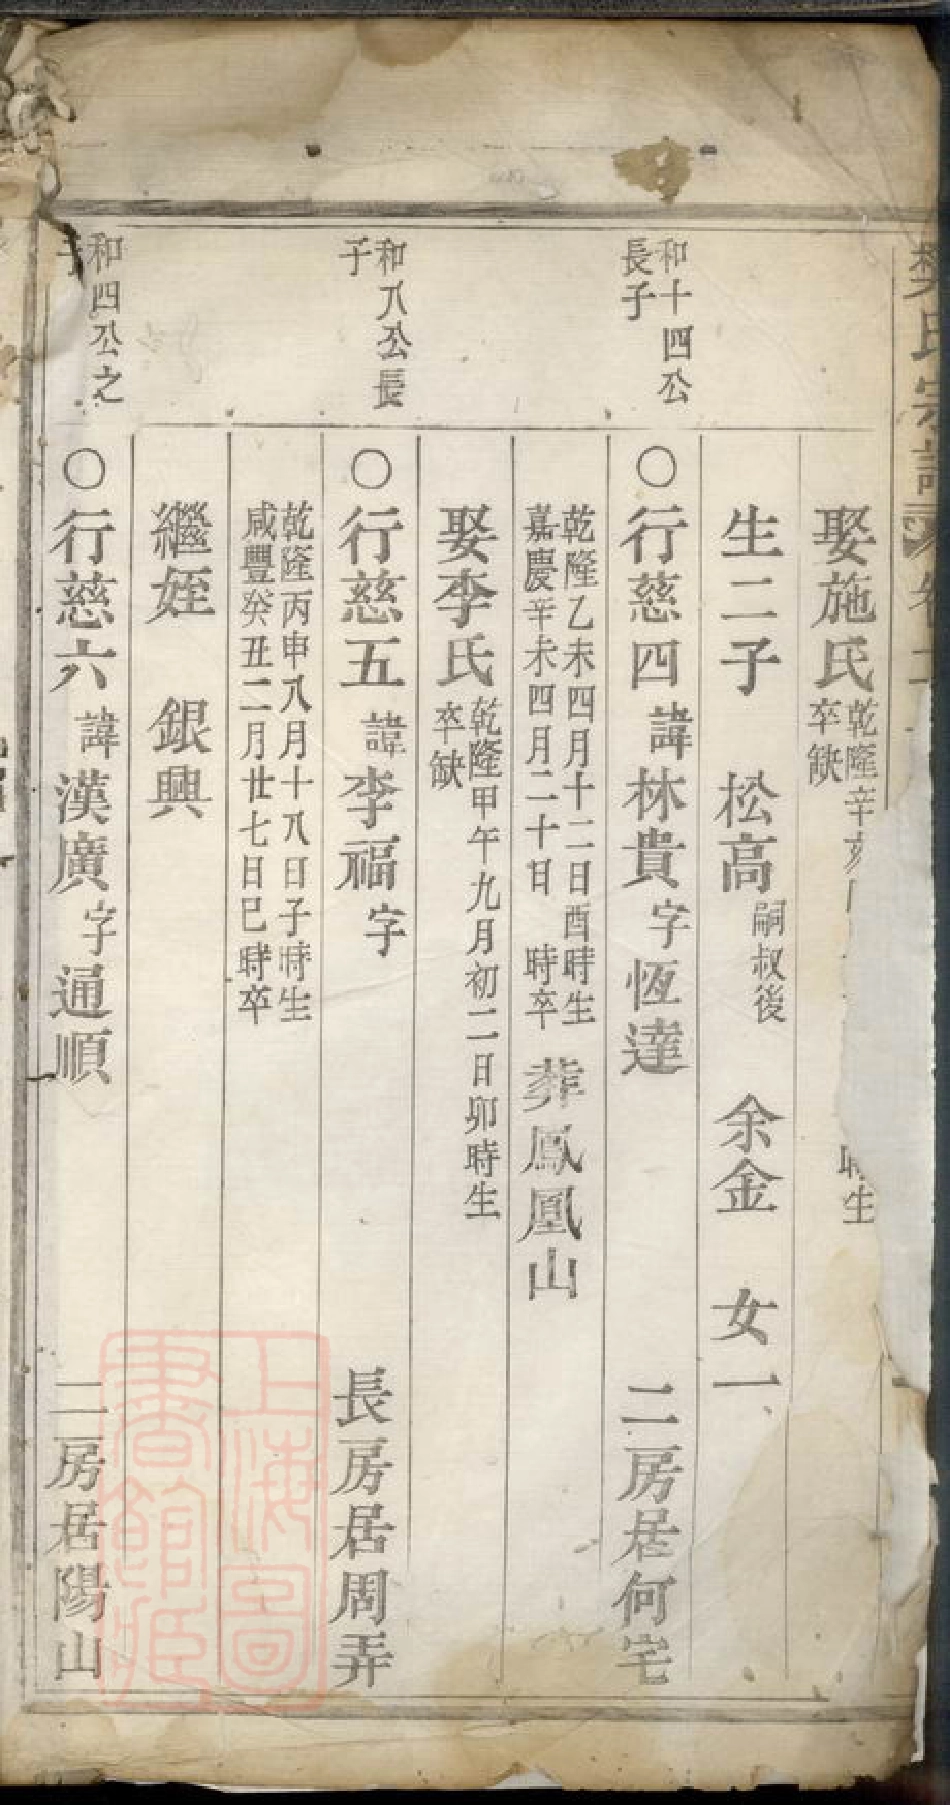 樊氏宗譜
娶施氏 乾隆辛亥 時生
卒缺
生二子 松高 嗣叔後 余金 女一
和十四公
長子
○行慈四 諱林貴 字恆達 二房居何宅
乾隆乙未四月十二日酉時生
嘉慶辛未四月二十日 時卒 葬鳳凰山
娶李氏 乾隆甲午九月初二日卯時生
卒缺
和八公長
子
○行慈五 諱李福 字 長房居周弄
乾隆丙申八月十八日子時生
咸豐癸丑二月廿七日巳時卒
繼姪 銀興
和四公之
子
○行慈六 諱漢廣 字通順 二房居陽山
上海圖
書館藏